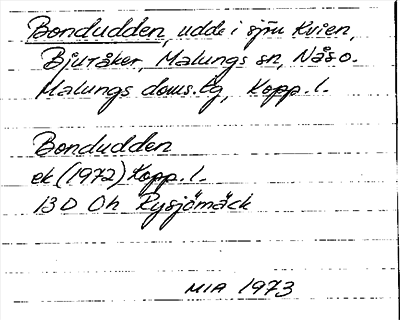 Bondudden, udde i sjön Kvien,
Bjuråker, Malungs sn, Nås o.
Malungs doms.bg, Kopp. l.
Bondudden
ek (1972) Kopp. l.
13 D 0h Rysjömäck
MIA 1973